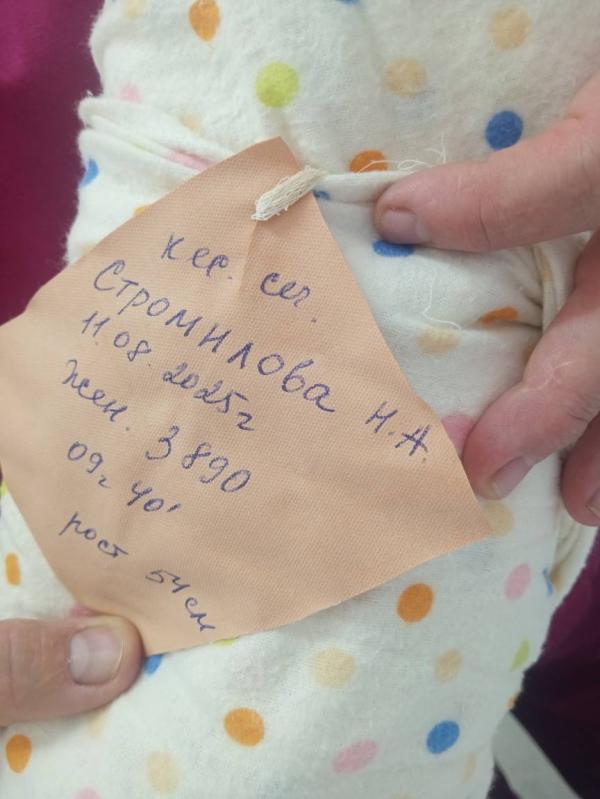 Кес. сеч.
Стромилова Н.А.
11.08.2025г
Жен. 3890
09ч 40'
рост 54см